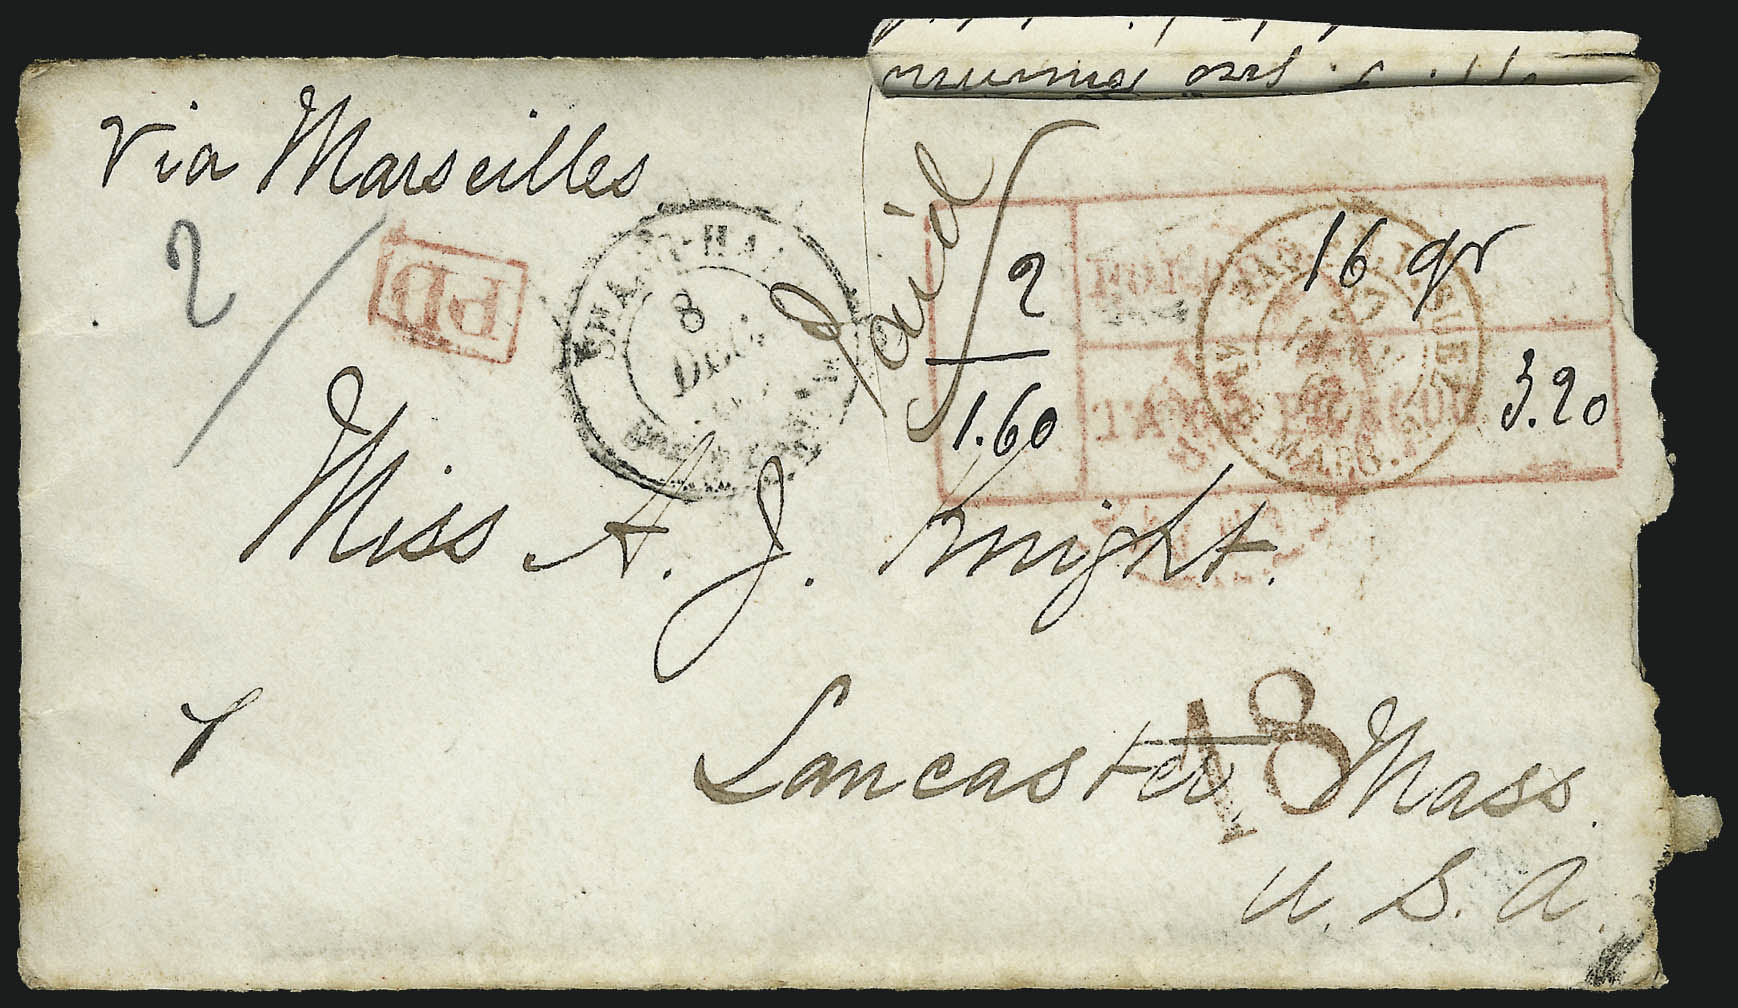 Via Marseilles
2
PD
SHANG-HAI
8
DEC.
Paid
2
1.60
16 gr
3.20
POIDS
TAXE PERÇUE
SUEZ
MARS.
Miss A. J. Knight.
18
Lancaster Mass.
U. S. A.